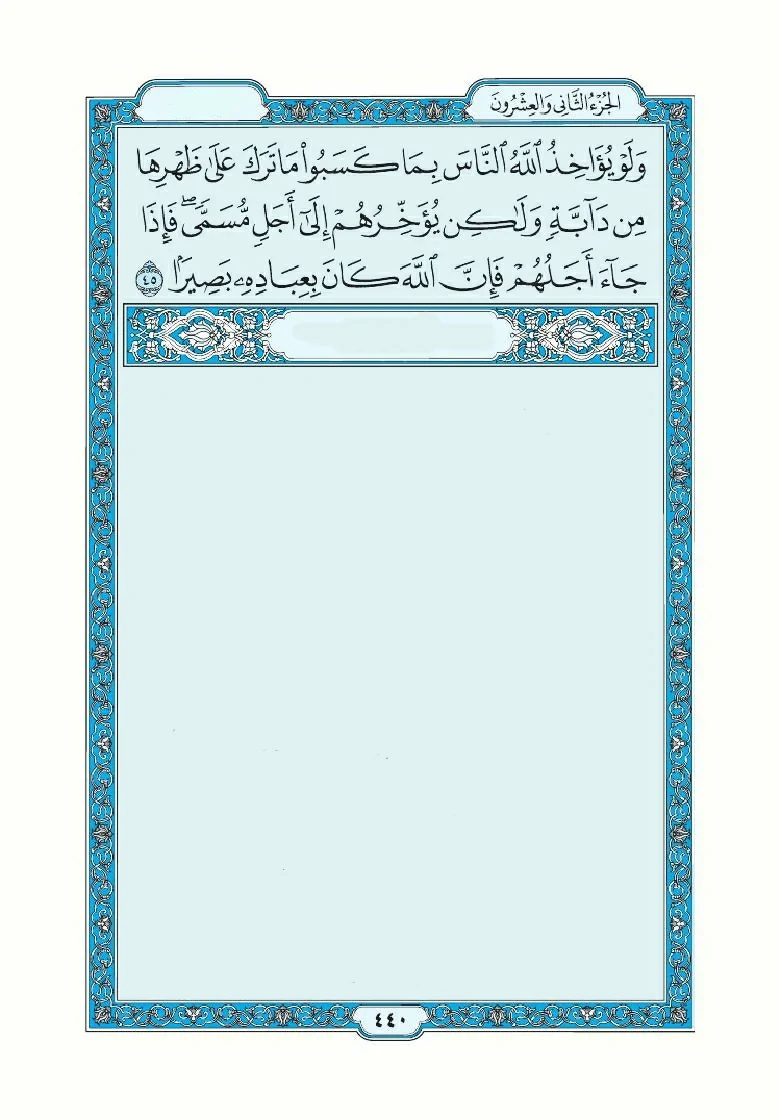 الجُزْءُ الثَّانِي وَالعِشْرُونَ
وَلَوْ يُؤَاخِذُ ٱللَّهُ ٱلنَّاسَ بِمَا كَسَبُوا۟ مَا تَرَكَ عَلَىٰ ظَهْرِهَا
مِن دَآبَّةٍ وَلَٰكِن يُؤَخِّرُهُمْ إِلَىٰٓ أَجَلٍ مُّسَمًّى ۖ فَإِذَا
جَآءَ أَجَلُهُمْ فَإِنَّ ٱللَّهَ كَانَ بِعِبَادِهِۦ بَصِيرًۢا ٤٥
٤٤٠